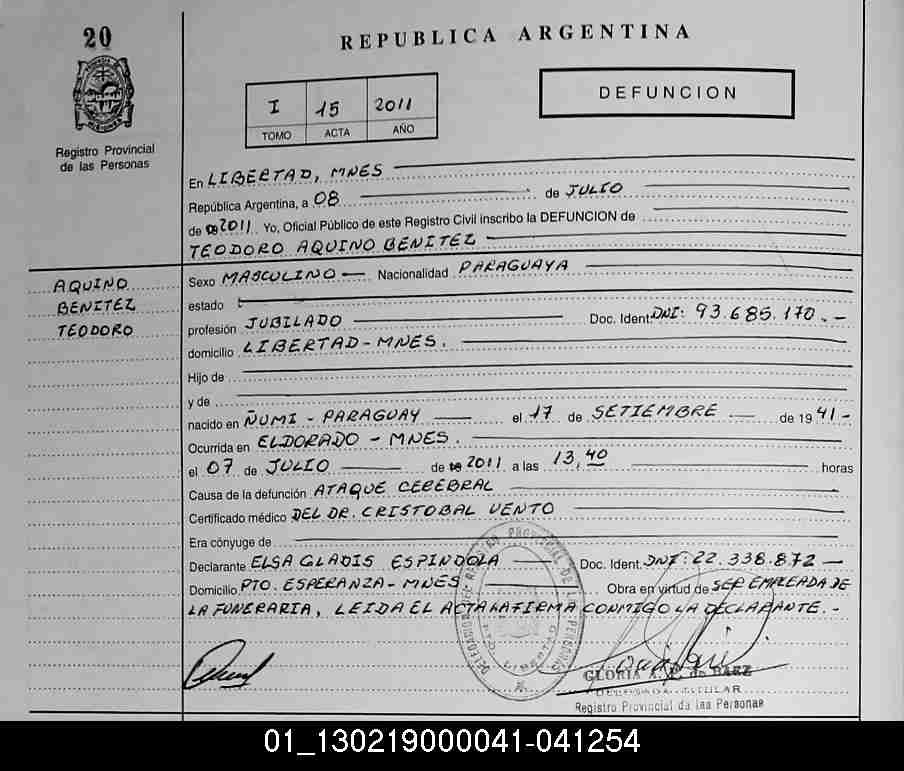 20
REPUBLICA ARGENTINA
I 15 2011
TOMO ACTA AÑO
DEFUNCION
Registro Provincial
de las Personas
En LIBERTAD, MNES
República Argentina, a 08 de JULIO
de 2011 Yo, Oficial Público de este Registro Civil inscribo la DEFUNCION de
TEODORO AQUINO BENITEZ
AQUINO
BENITEZ
TEODORO
Sexo MASCULINO — Nacionalidad PARAGUAYA
estado
profesión JUBILADO Doc. Ident: DNI: 93.685.170.-
domicilio LIBERTAD - MNES.
Hijo de
y de
nacido en ÑUMI - PARAGUAY el 17 de SETIEMBRE de 1941-
Ocurrida en ELDORADO - MNES.
el 07 de JULIO de 2011 a las 13,40 horas
Causa de la defunción ATAQUE CEREBRAL
Certificado médico DEL DR. CRISTOBAL VENTO
Era cónyuge de
Declarante ELSA GLADIS ESPINDOLA Doc. Ident. DNI: 22.338.872 —
Domicilio PTO. ESPERANZA - MNES Obra en virtud de SER EMPLEADA DE
LA FUNERARIA, LEIDA EL ACTA LA FIRMA CONMIGO LA DECLARANTE.-
GLORIA A. P. de BAEZ
DELEGADA TITULAR
Registro Provincial de las Personas
01_130219000041-041254